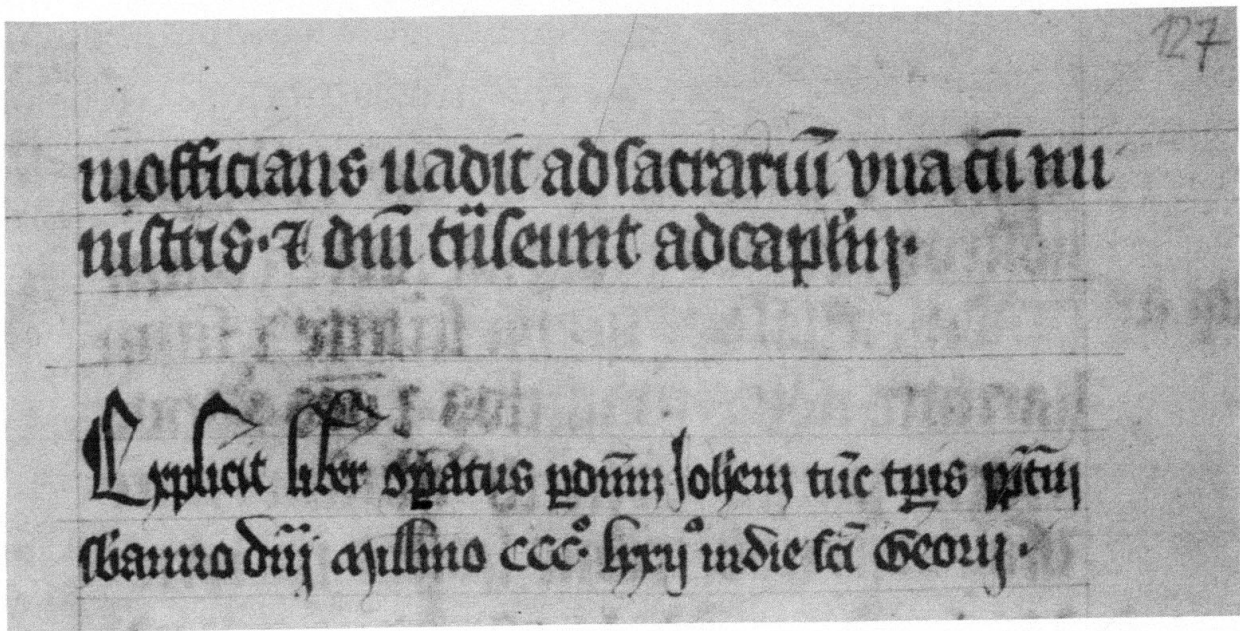 127
inofficians uadit ad sacrariū vna cū mi
nistris · ⁊ dn̄i trāseunt ad capl̄m ·
Explicit liber op̄atus ꝑ dom̄m Joh̄em tūc tꝑis
sb anno dn̄j Millimo CCCº lxxijº in die sc̄i Georij ·